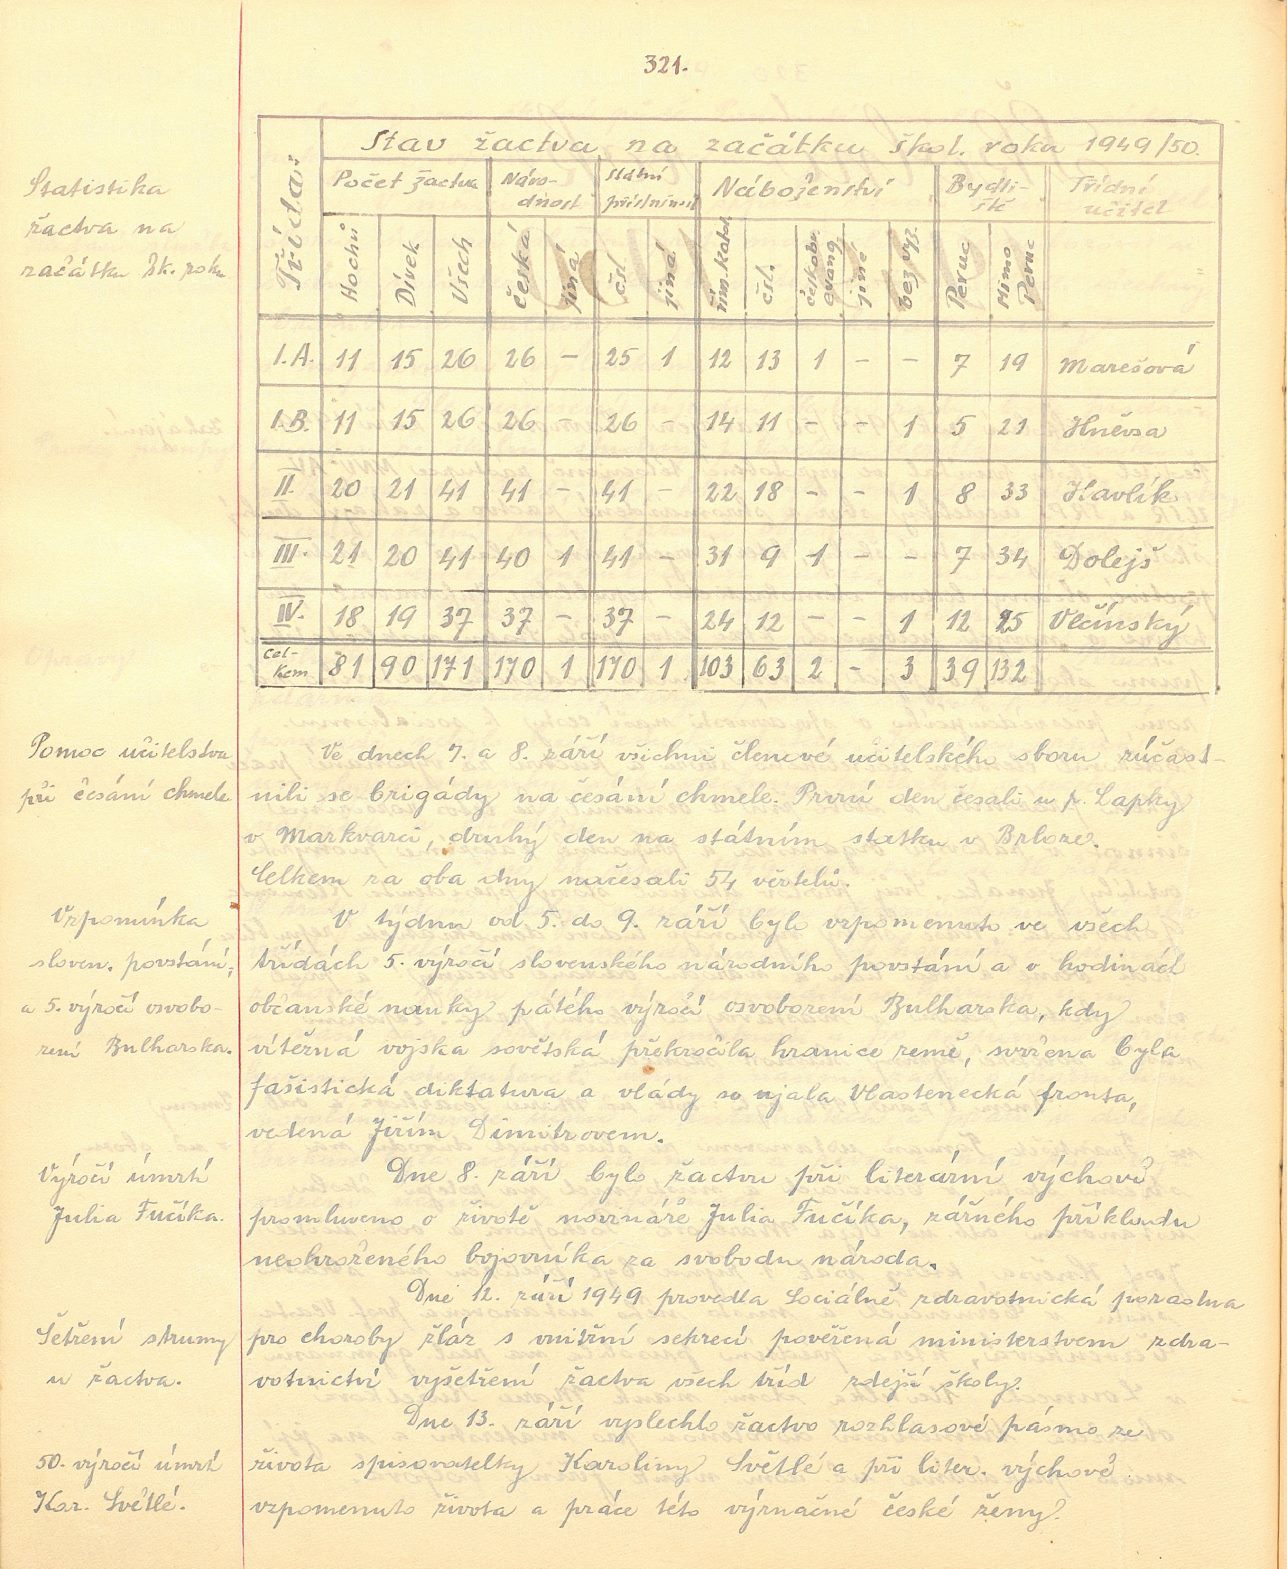 321.
Statistika
žactva na
začátku šk. roku
Třída:
Stav žactva na začátku škol. roku 1949/50.
Počet žactva | Národnost | Státní příslušnost | Náboženství | Bydliště | Třídní učitel
Hochů | Dívek | Všech | česká | jiná | čsl. | jiná | řím. katol. | čsl. | českobr. evang. | jiné | bez vyz. | Peruc | Mimo Peruc
I.A. 11 15 26 26 – 25 1 12 13 1 – – 7 19 Marešová
I.B. 11 15 26 26 – 26 – 14 11 – – 1 5 21 Hněvsa
II. 20 21 41 41 – 41 – 22 18 – – 1 8 33 Havlík
III. 21 20 41 40 1 41 – 31 9 1 – – 7 34 Dolejš
IV. 18 19 37 37 – 37 – 24 12 – – 1 12 25 Vlčínský
Celkem 81 90 171 170 1 170 1 103 63 2 – 3 39 132
Pomoc učitelstva
při česání chmele
Ve dnech 7. a 8. září všichni členové učitelského sboru zúčast-
nili se brigády na česání chmele. První den česali u p. Lapky
v Markvarci, druhý den na státním statku v Brloze.
Celkem za oba dny načesali 54 věrtelů.
Vzpomínka
sloven. povstání,
a 5. výročí osvobo-
zení Bulharska.
V týdnu od 5. do 9. září bylo vzpomenuto ve všech
třídách 5. výročí slovenského národního povstání a v hodinách
občanské nauky pátého výročí osvobození Bulharska, kdy
vítězná vojska sovětská překročila hranice země, svržena byla
fašistická diktatura a vlády se ujala Vlastenecká fronta,
vedená Jiřím Dimitrovem.
Výročí úmrtí
Julia Fučíka.
Dne 8. září bylo žactvu při literární výchově
promluveno o životě novináře Julia Fučíka, zářného příkladu
neohroženého bojovníka za svobodu národa.
Šetření strumy
u žactva.
Dne 12. září 1949 provedla Sociálně zdravotnická poradna
pro choroby žláz s vnitřní sekrecí pověřená ministerstvem zdra-
votnictví vyšetření žactva všech tříd zdejší školy.
50. výročí úmrtí
Kar. Světlé.
Dne 13. září vyslechlo žactvo rozhlasové pásmo ze
života spisovatelky Karoliny Světlé a při liter. výchově
vzpomenuto života a práce této význačné české ženy.